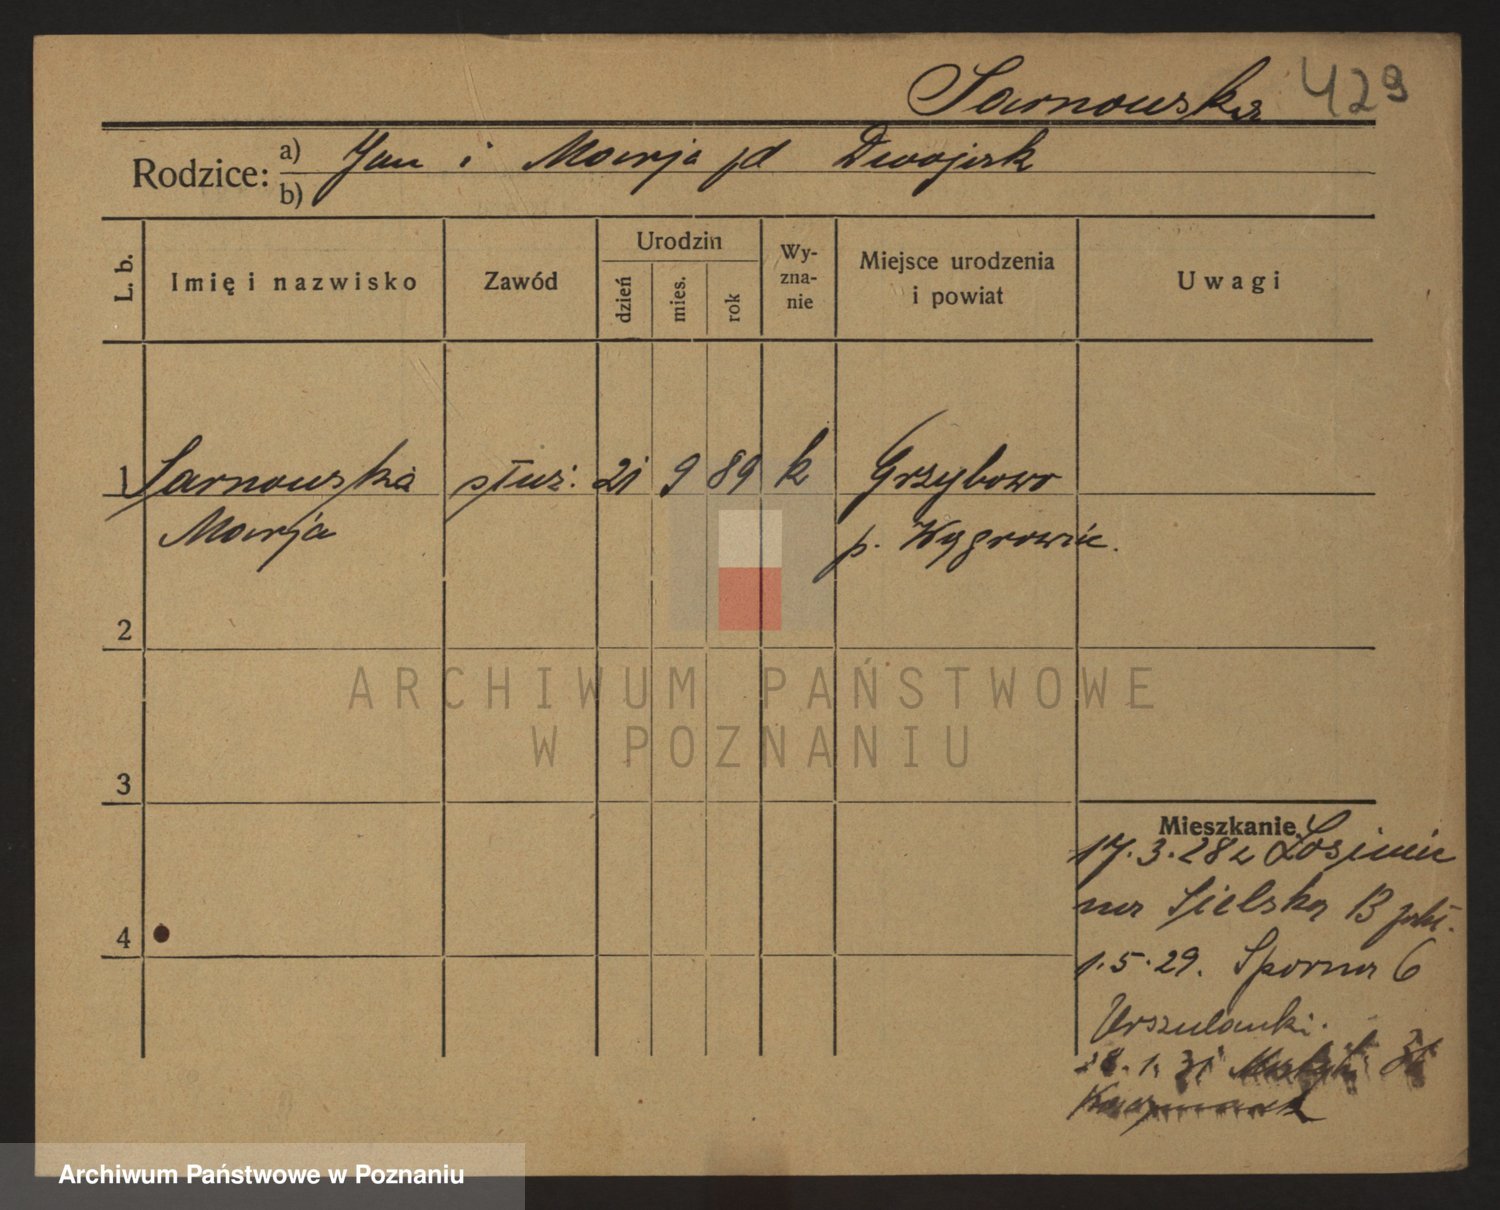 Sarnowska 429
Rodzice: a) Jan i Marja pd Dwojak
b)
L. b. Imię i nazwisko Zawód Urodzin dzień mies. rok Wy-zna-nie Miejsce urodzenia i powiat Uwagi
1 Sarnowska służ. 21 9 89 k Grzybowo
Marja p. Wągrowiec.
2
3
4
Mieszkanie
17.3.28 z
Sielska 13
1.5.29. Sporna 6
Urszulanki.
28.1.31
ARCHIWUM PAŃSTWOWE
W POZNANIU
Archiwum Państwowe w Poznaniu